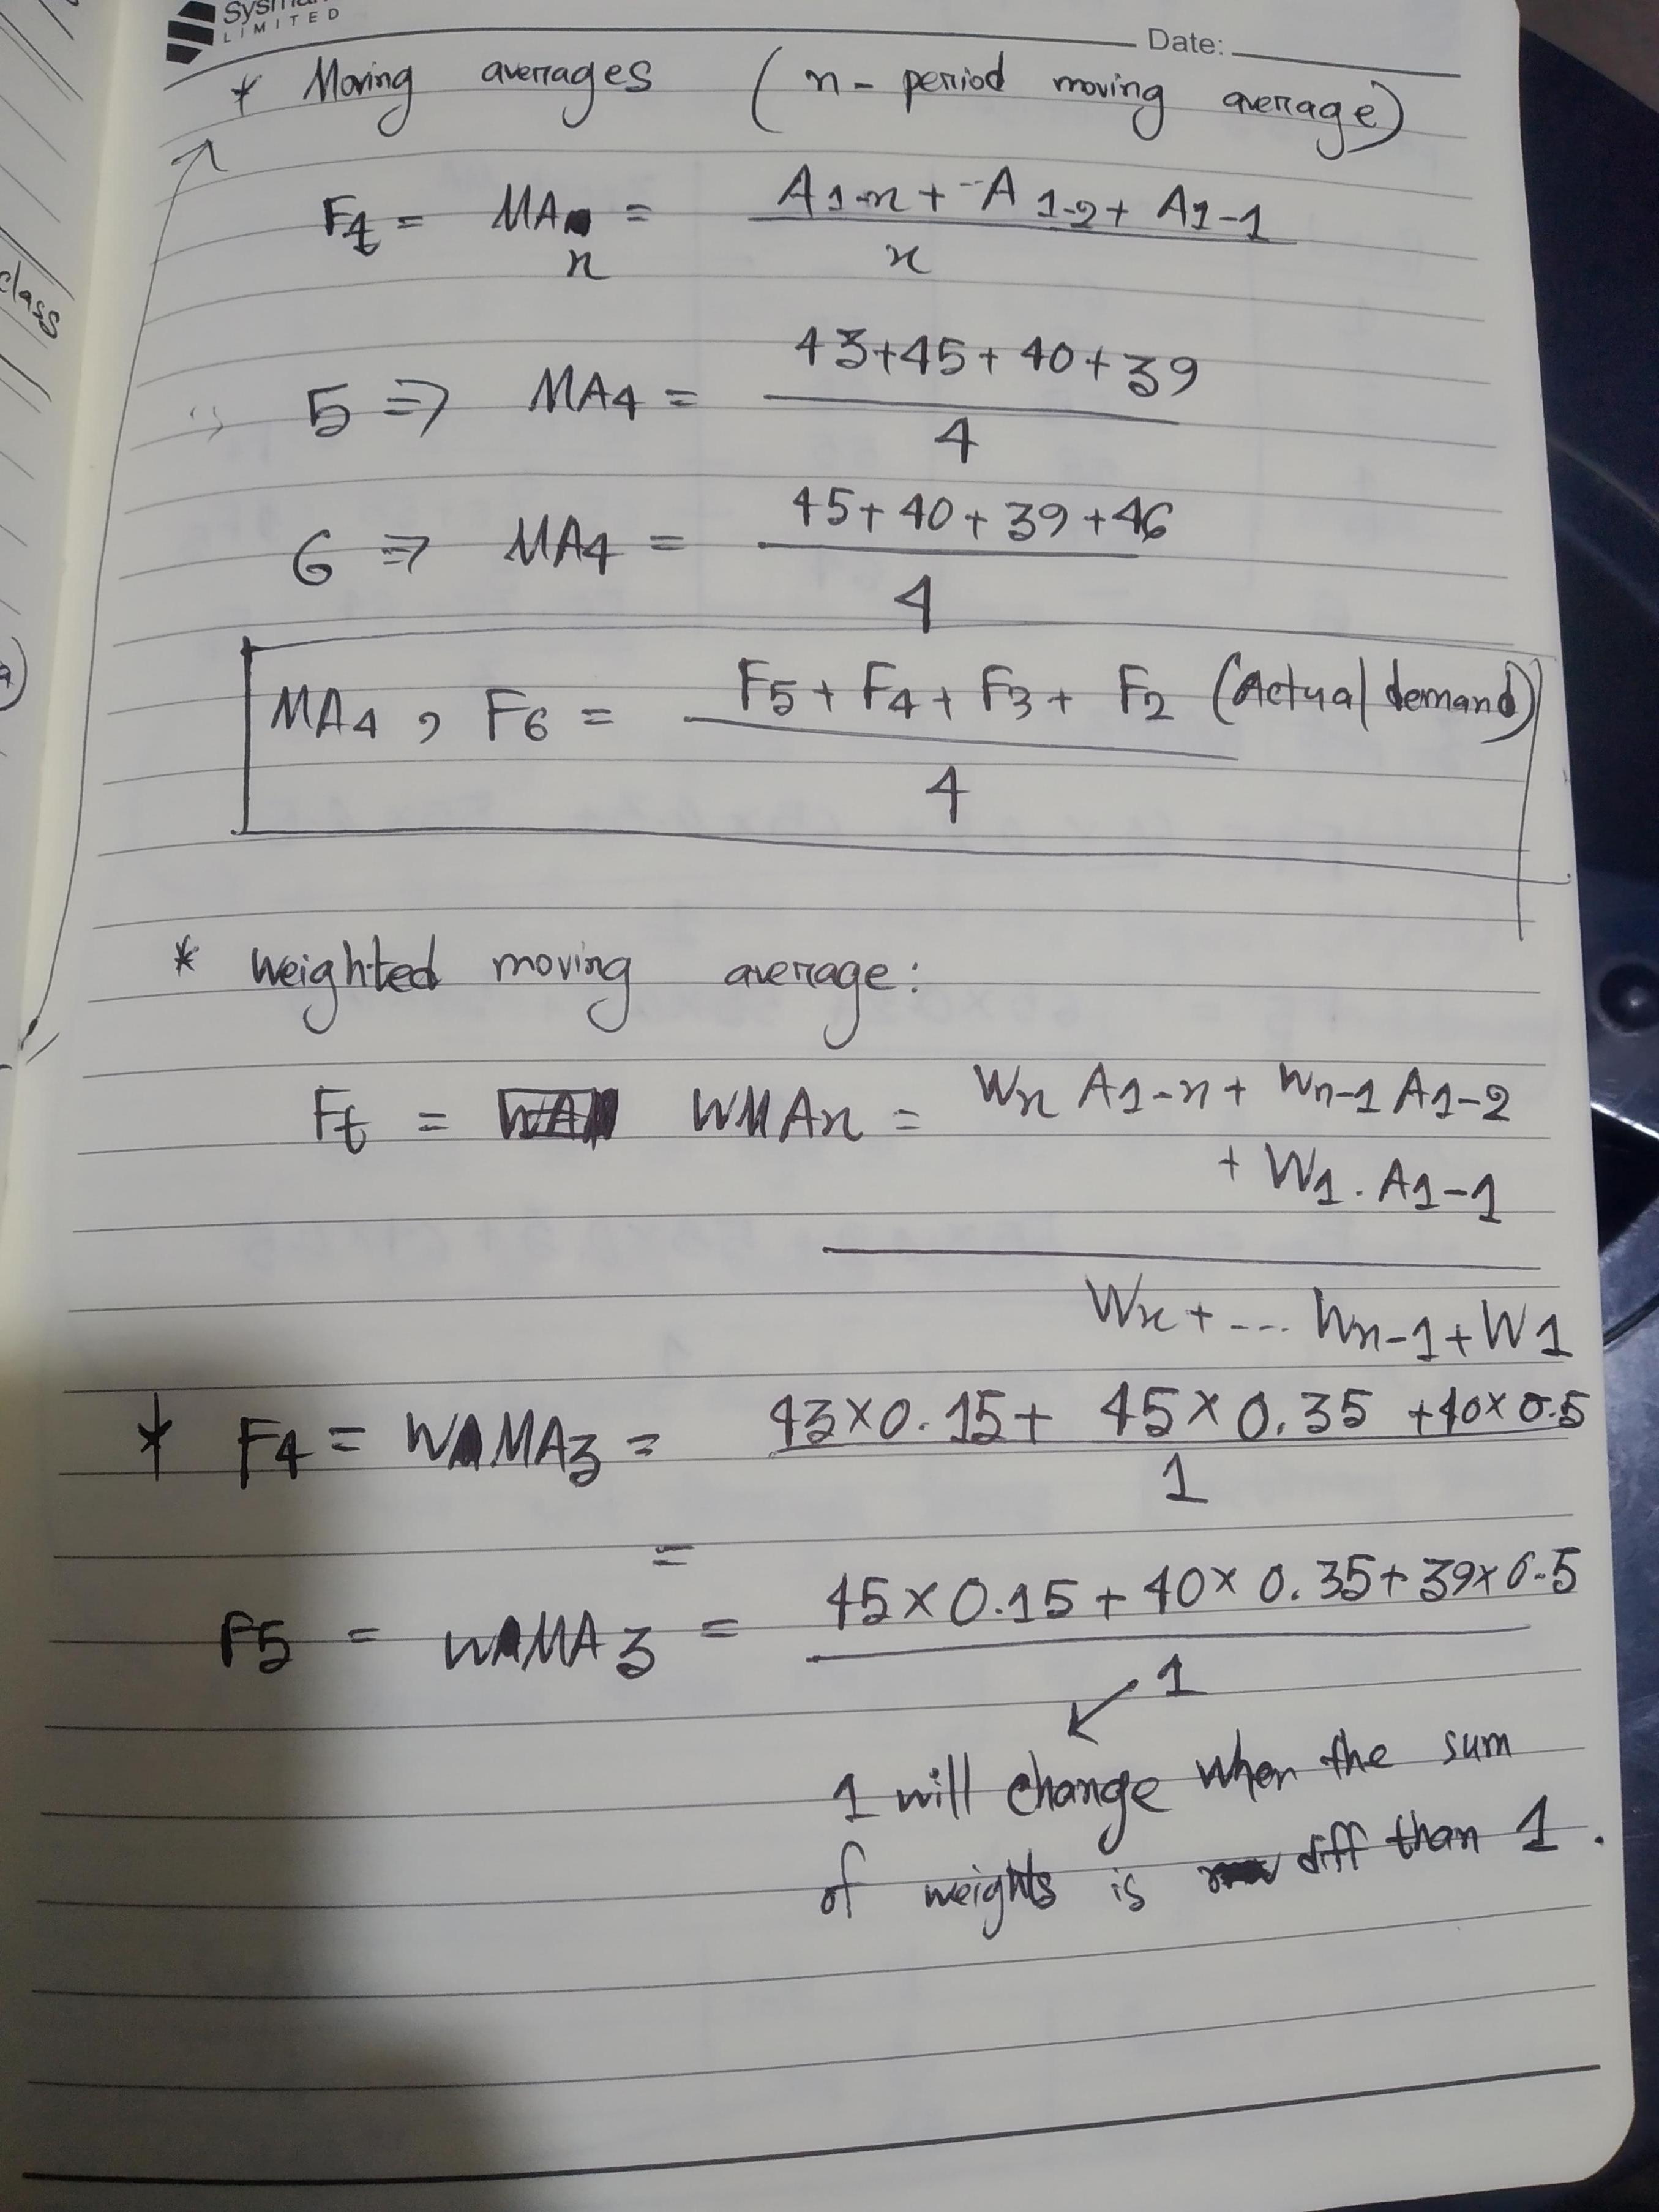 LIMITED
Date:
* Moving averages (n - period moving average)
Ft = MA n = A1-n + -A 1-2 + A1-1 / n
5 => MA4 = 43+45+40+39 / 4
6 => MA4 = 45+40+39+46 / 4
MA4, F6 = F5 + F4 + F3 + F2 (Actual demand) / 4
* weighted moving average:
Ft = WMAn = Wn A1-n + Wn-1 A1-2
+ W1 . A1-1
Wn + ... Wn-1 + W1
* F4 = WMA3 = 43×0.15 + 45×0.35 + 40×0.5 / 1
=
F5 = WMA3 = 45×0.15 + 40×0.35 + 39×0.5 / 1
1 will change when the sum
of weights is diff than 1.
class